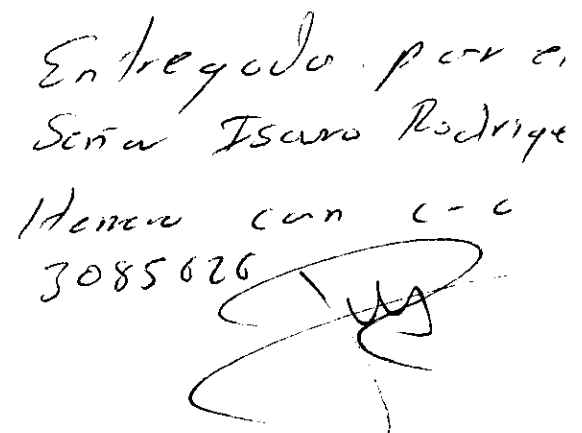 Entregado por el
Señor Isauro Rodrigue
Herrera con c-c
3085626